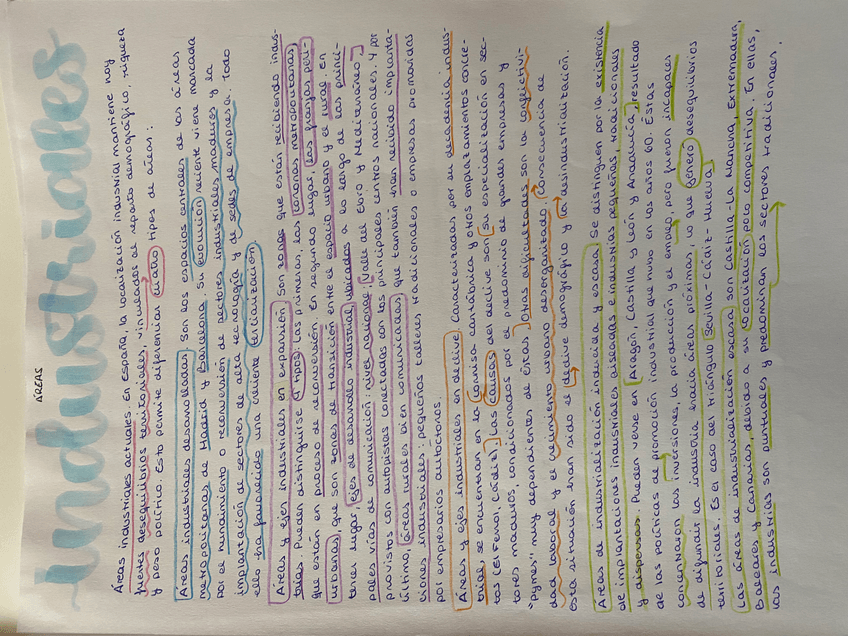 ÁREAS
industriales
Áreas industriales actuales. En España, la localización industrial mantiene hoy
fuertes desequilibrios territoriales, vinculados al reparto demográfico, riqueza
y peso político. Esto permite diferenciar cuatro tipos de áreas:
Áreas industriales desarrolladas. Son los espacios centrales de las áreas
metropolitanas de Madrid y Barcelona. Su evolución reciente viene marcada
por el hundimiento o reconversión de sectores industriales maduros y la
implantación de sectores de alta tecnología y de sedes de empresa. Todo
ello ha favorecido una creciente terciarización.
Áreas y ejes industriales en expansión. Son zonas que están recibiendo indus-
trias. Pueden distinguirse 4 tipos. Las primeras, las coronas metropolitanas,
que están en proceso de reconversión. En segundo lugar, las franjas peri-
urbanas, que son zonas de transición entre el espacio urbano y el rural. En
tercer lugar, ejes de desarrollo industrial ubicados a lo largo de las princi-
pales vías de comunicación: nivel nacional (Valle del Ebro y Mediterráneo)
provistos con autopistas conectadas con los principales centros nacionales. Y por
último, áreas rurales bien comunicadas, que también han recibido implanta-
ciones industriales: pequeños talleres tradicionales o empresas promovidas
por empresarios autóctonos.
Áreas y ejes industriales en declive. Caracterizadas por su decadencia indus-
trial, se encuentran en la cornisa cantábrica y otros emplazamientos concre-
tos (El Ferrol, Cádiz). Las causas del declive son su especialización en sec-
tores maduros, condicionados por el predominio de grandes empresas y
"pymes" muy dependientes de éstas. Otras dificultades son la conflictivi-
dad laboral y el crecimiento urbano desorganizado, consecuencia de
esta situación han sido el declive demográfico y la desindustrialización.
Áreas de industrialización inducida y escasa. Se distinguen por la existencia
de implantaciones industriales aisladas e industrias pequeñas, tradicionales
y dispersas. Pueden verse en Aragón, Castilla y León y Andalucía, resultado
de las políticas de promoción industrial que hubo en los años 60. Éstas
concentraron las inversiones, la producción y el empleo, pero fueron incapaces
de difundir la industria hacia áreas próximas, lo que generó desequilibrios
territoriales. Es el caso del triángulo Sevilla-Cádiz-Huelva.
Las áreas de industrialización escasa son Castilla-La Mancha, Extremadura,
Baleares y Canarias, debido a su localización poco competitiva. En ellas,
las industrias son puntuales y predominan los sectores tradicionales.